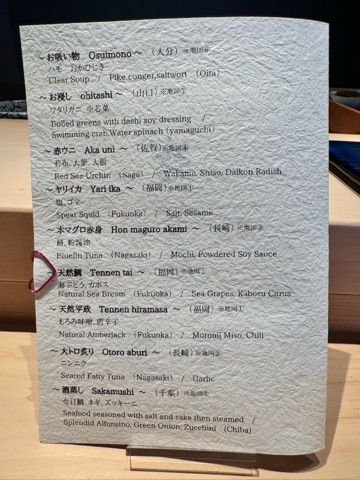 ~お吸い物 Osuimono ~ （大分）※地図⑥
ハモ おかひじき
Clear Soup / Pike conger,saltwort (Oita)
~お浸し ohitashi ~ （山口）※地図
ワタリガニ、空芯菜
Boiled greens with dashi soy dressing /
Swimming crab,Water spinach (yamaguchi)
~赤ウニ Aka uni ~ （佐賀）※地図
若布、大葉、大根
Red Sea Urchin (Saga) / Wakame, Shiso, Daikon Radish
~ヤリイカ Yari ika ~ （福岡）※地図
塩、ゴマ
Spear Squid (Fukuoka) / Salt, Sesame
~本マグロ赤身 Hon maguro akami ~ （長崎）※地図
餅、粉醤油
Bluefin Tuna (Nagasaki) / Mochi, Powdered Soy Sauce
天然鯛 Tennen tai ~ （福岡）※地図
海ぶどう、カボス
Natural Sea Bream (Fukuoka) / Sea Grapes, Kabosu Citrus
~天然平政 Tennen hiramasa ~ （福岡）※地図
もろみ味噌、唐辛子
Natural Amberjack (Fukuoka) / Moromi Miso, Chili
~大トロ炙り Otoro aburi ~ （長崎）※地図
ニンニク
Seared Fatty Tuna (Nagasaki) / Garlic
~酒蒸し Sakamushi ~ （千葉）※地図
金目鯛、ネギ、ズッキーニ
Seafood seasoned with salt and sake then steamed /
Splendid Alfonsino, Green Onion, Zucchini (Chiba)